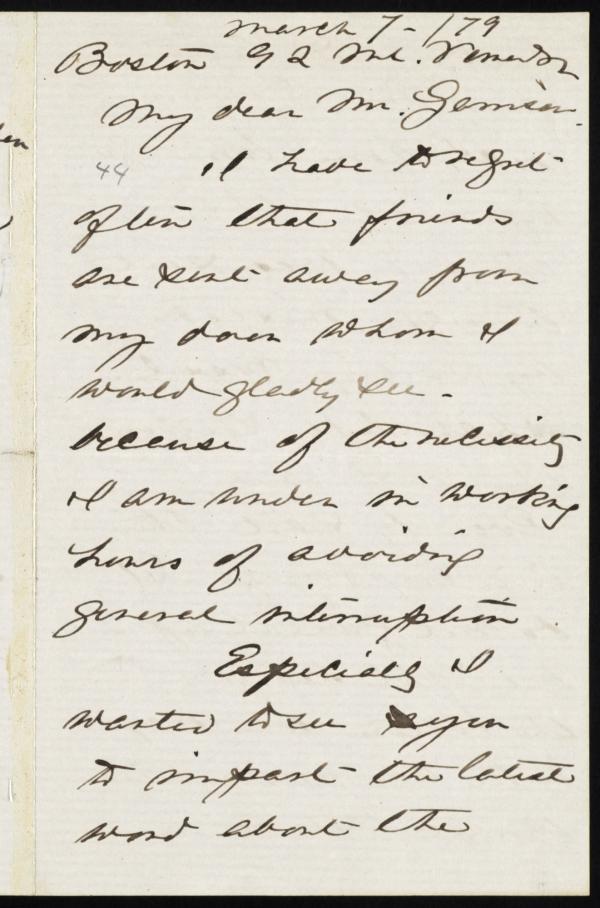 March 7 - /79
Boston 92 Mt. Vernon
My dear Mr. Garrison.
44 I have to regret
often that friends
are sent away from
my door whom I
would gladly see -
because of the necessity
I am under in working
hours of avoiding
general interruption
Especially I
wanted to see you
to impart the latest
word about the